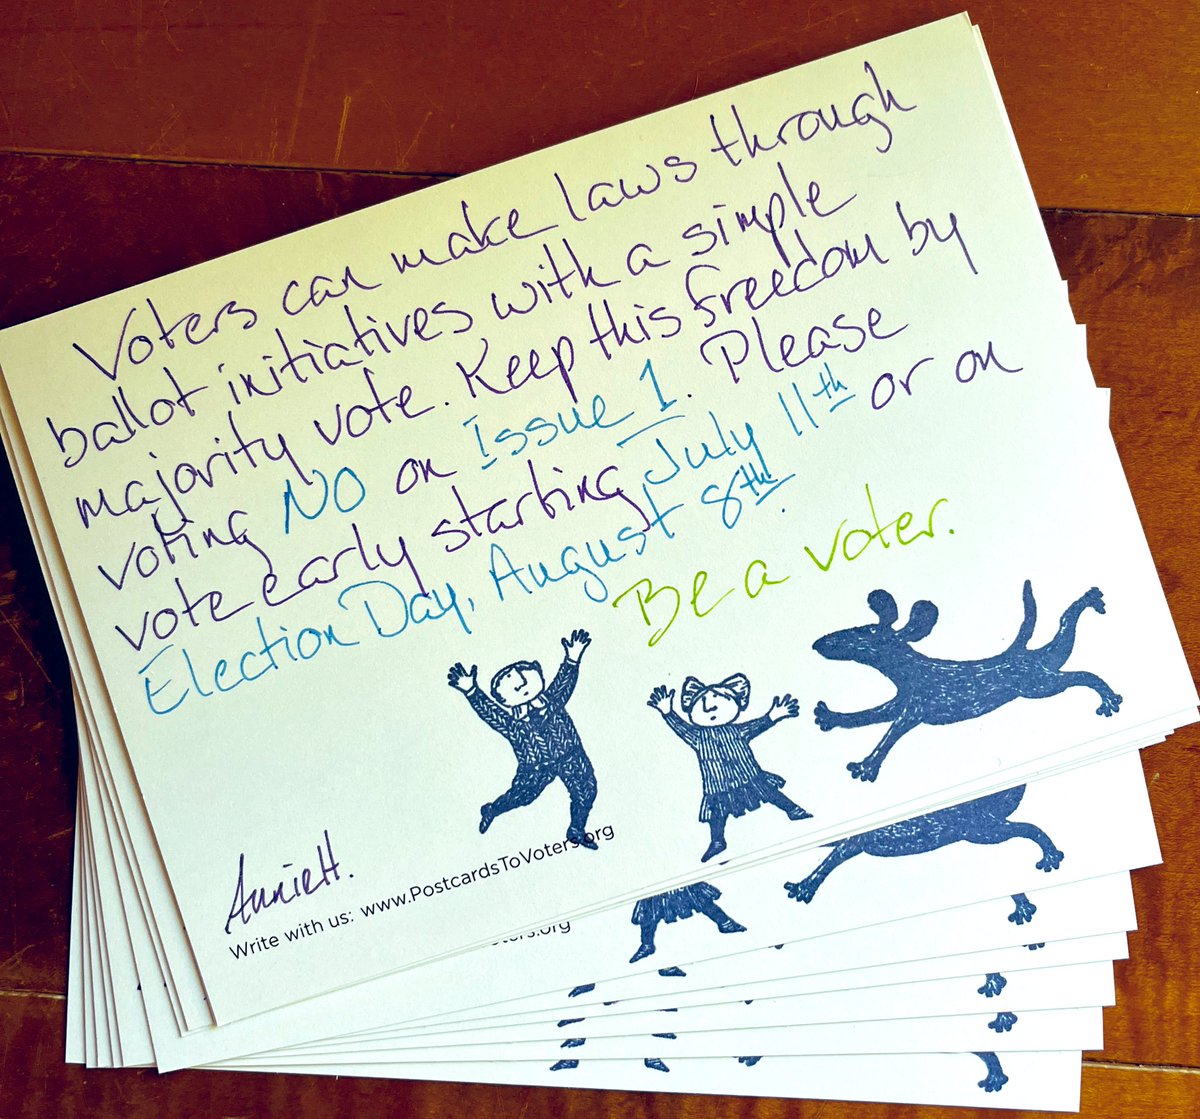 Voters can make laws through
ballot initiatives with a simple
majority vote. Keep this freedom by
voting NO on Issue 1. Please
vote early starting July 11th or on
Election Day, August 8th.
Be a voter.
AnnieH.
Write with us: www.PostcardsToVoters.org
oters.org